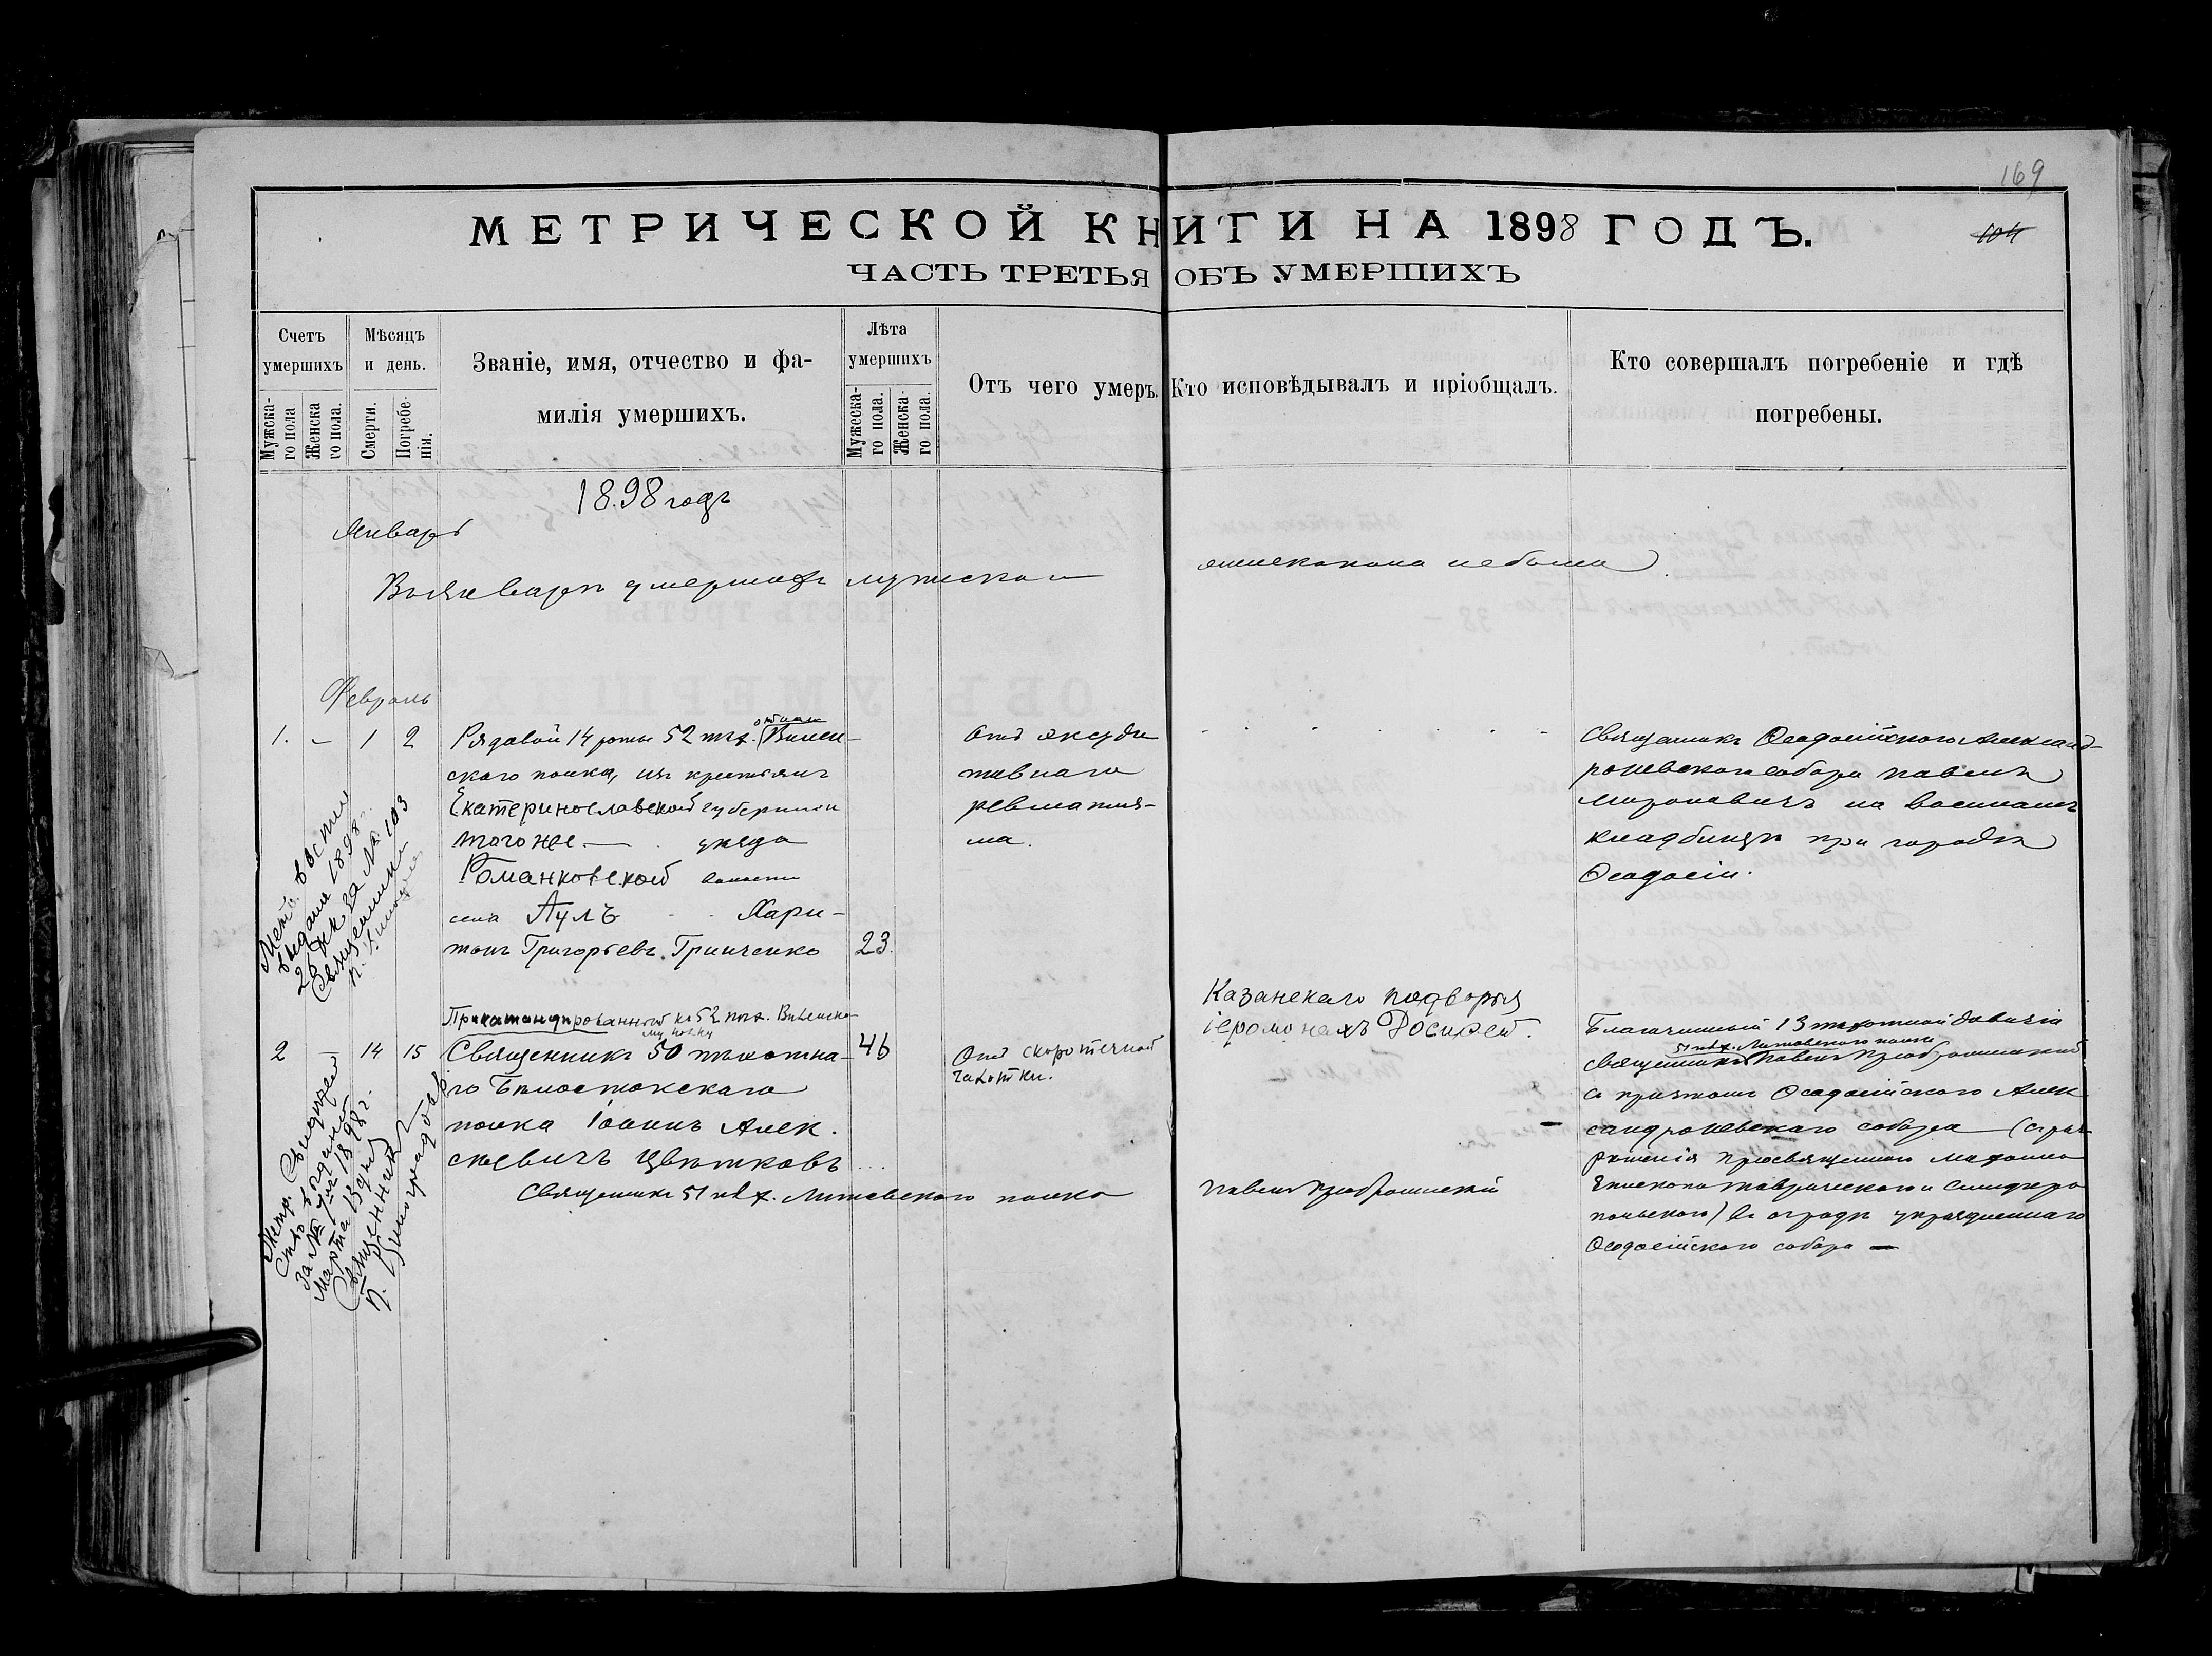 169
МЕТРИЧЕСКОЙ КНИГИ НА 1898 ГОДЪ.
104
ЧАСТЬ ТРЕТЬЯ ОБЪ УМЕРШИХЪ
Счетъ умершихъ
Мужеска-го пола
Женска го пола.
Мѣсяцъ и день.
Смерти.
Погребе-нія.
Званіе, имя, отчество и фа-
милія умершихъ.
Лѣта умершихъ
Мужеска-го пола.
Женска-го пола.
Отъ чего умеръ.
Кто исповѣдывалъ и пріобщалъ.
Кто совершалъ погребеніе и гдѣ
погребены.
1898 годъ
Январь
Въ Январѣ умершихъ мужеска и
женска пола не было
Февраль
1. – 1 2
Рядовой 14 роты 52 пѣх. Вилен-
скаго полка, изъ крестьянъ
Екатеринославской губерніи
того же — уѣзда
Романковской волости
села Аулъ Хари-
тонъ Григорьевъ Гринченко
23.
Отъ эксуда
тивнаго
ревматиз-
ма.
Священникъ Ѳеодосійскаго Александ-
роневскаго собора Павелъ
Мироновичъ на военномъ
кладбищѣ при городѣ
Ѳеодосіи.
Мет. выпись
выдана 1898 г.
за № 103
Священникъ
Прикомандированный къ 52 пѣх. Виленско-
му полку
2 – 14 15
Священникъ 50 пѣхотна-
го Бѣлостокскаго
полка Іоаннъ Алек.
сѣевичъ Цвѣтковъ
46
Отъ скоротечной
чахотки.
Казанскаго подворья
іеромонахъ Досиѳей.
Благочинный 13 пѣхотной дивизіи
51 пѣх. Литовскаго полка
священникъ Павелъ
съ причтомъ Ѳеодосійскаго Алек
сандроневскаго собора (съ раз-
рѣшенія преосвященнаго
Епископа Таврическаго и Симферо
польскаго) въ оградѣ упраздненнаго
Ѳеодосійскаго собора —
Священникъ 51 пѣх. Литовскаго полка
Павелъ
Метр. Свидѣтель
ство выдано
за №
Марта 13 дня 1898 г.
Священникъ
П. Виноградовъ